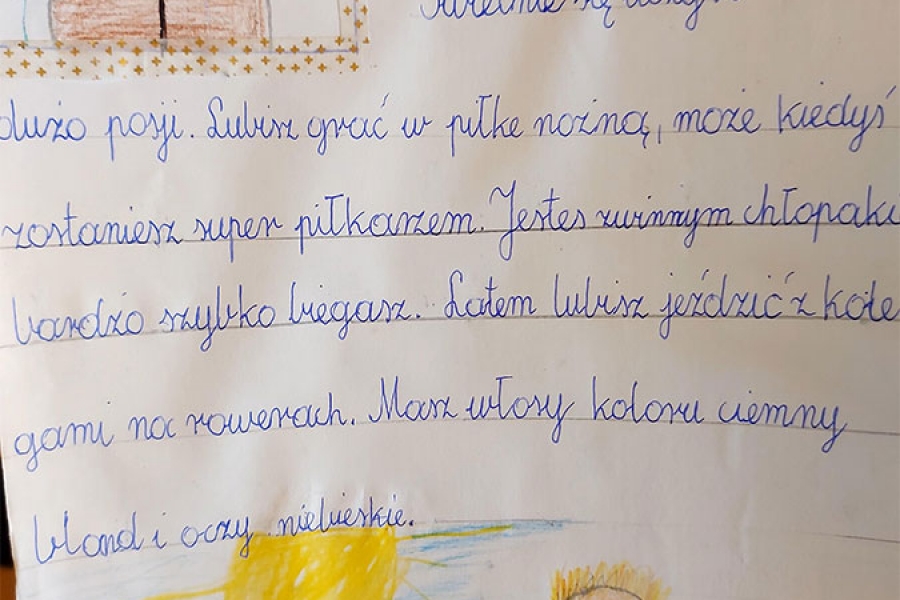 Świetnie się
dużo pasji. Lubisz grać w piłke nożną, może kiedyś
zostaniesz super piłkarzem. Jesteś zwinnym chłopaki
bardzo szybko biegasz. Latem lubisz jeździć z kole
gami na rowerach. Masz włosy koloru ciemny
bland i oczy niebieskie.